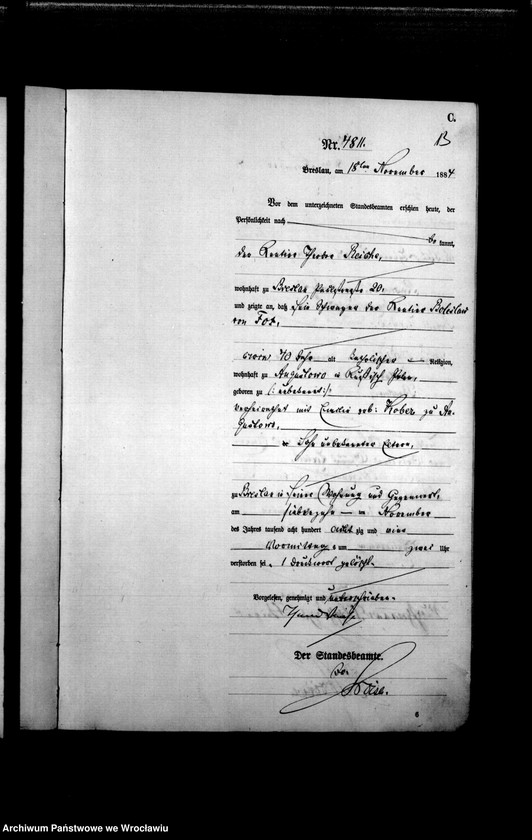 C.
B
Nr. 4811.
Breslau, am 18ten November 1884
Vor dem unterzeichneten Standesbeamten erschien heute, der
Persönlichkeit nach
be kannt,
der Rentier Theodor Reiche,
wohnhaft zu Breslau 20,
und zeigte an, daß sein Schwager der Rentier Boleslaw
von Fox,
70 Jahr alt katholischer Religion,
wohnhaft zu Augustowo in Russisch Polen,
geboren zu /: unbekannt :/
verheirathet mit Emilie geb: Kober zu Au-
gustowo,
Sohn unbekannter Eltern,
zu Breslau in seiner Wohnung
am siebzehn im November
des Jahres tausend acht hundert acht zig und vier
Vormittags um zwei Uhr
verstorben sei. 1 Druckwort gelöscht.
Vorgelesen, genehmigt und unterschrieben
Der Standesbeamte.
6
Archiwum Państwowe we Wrocławiu